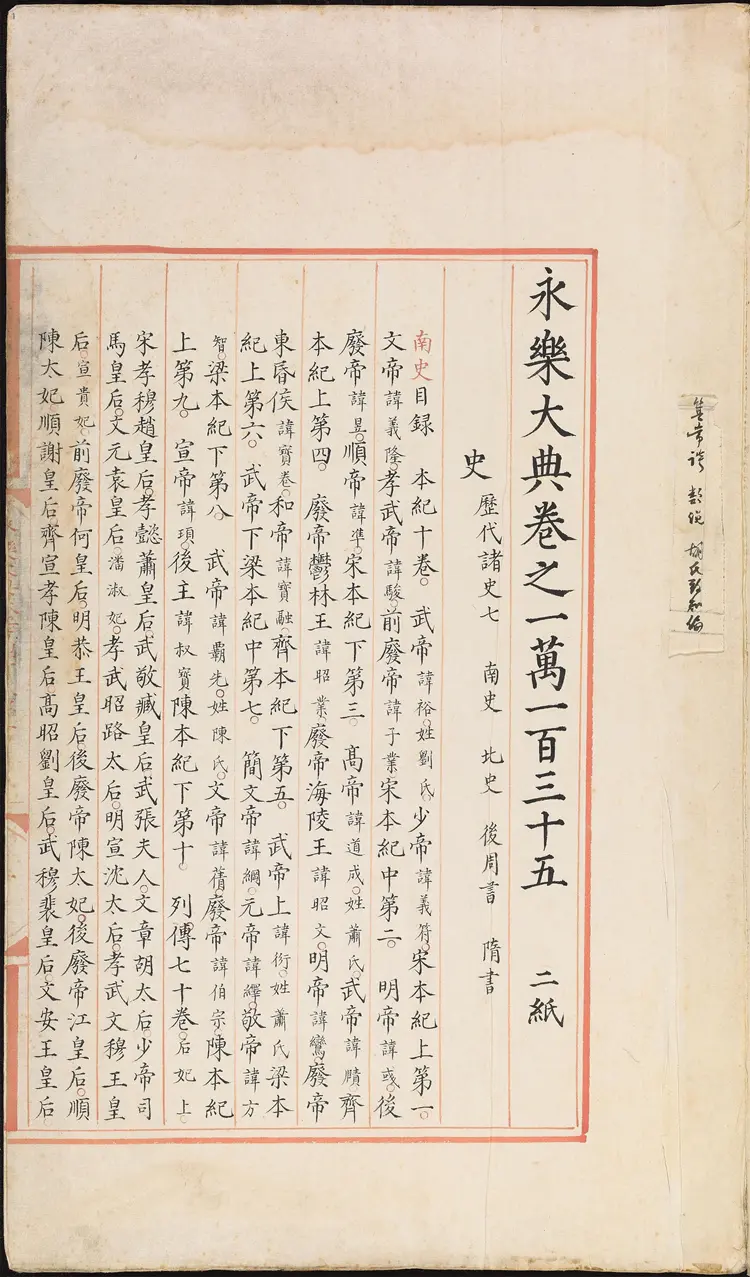 永樂大典卷之一萬一百三十五 二紙
史 歷代諸史七 南史 北史 後周書 隋書
南史目録 本紀十卷。 武帝諱裕。姓劉氏。少帝諱義符。宋本紀上第一。
文帝諱義隆。孝武帝諱駿。前廢帝諱子業。宋本紀中第二。 明帝諱彧。後
廢帝諱昱。順帝諱準。宋本紀下第三。 髙帝諱道成。姓蕭氏。武帝諱賾。齊
本紀上第四。 廢帝鬱林王諱昭業。廢帝海陵王諱昭文。明帝諱鸞。廢帝
東昏侯諱寳卷。和帝諱寳融。齊本紀下第五。 武帝上諱衍。姓蕭氏梁本
紀上第六。 武帝下梁本紀中第七。 簡文帝諱綱。元帝諱繹。敬帝諱方
智。梁本紀下第八。 武帝諱霸先。姓陳氏。文帝諱蒨。廢帝諱伯宗。陳本紀
上第九。 宣帝諱頊。後主諱叔寳陳本紀下第十。 列傳七十卷。后妃上。
宋孝穆趙皇后。孝懿蕭皇后武敬臧皇后武張夫人。文章胡太后。少帝司
馬皇后。文元袁皇后。潘淑妃。孝武昭路太后。明宣沈太后。孝武文穆王皇
后。宣貴妃。前廢帝何皇后。明恭王皇后。後廢帝陳太妃。後廢帝江皇后。順
陳太妃。順謝皇后齊宣孝陳皇后髙昭劉皇后。武穆裴皇后。文安王皇后。